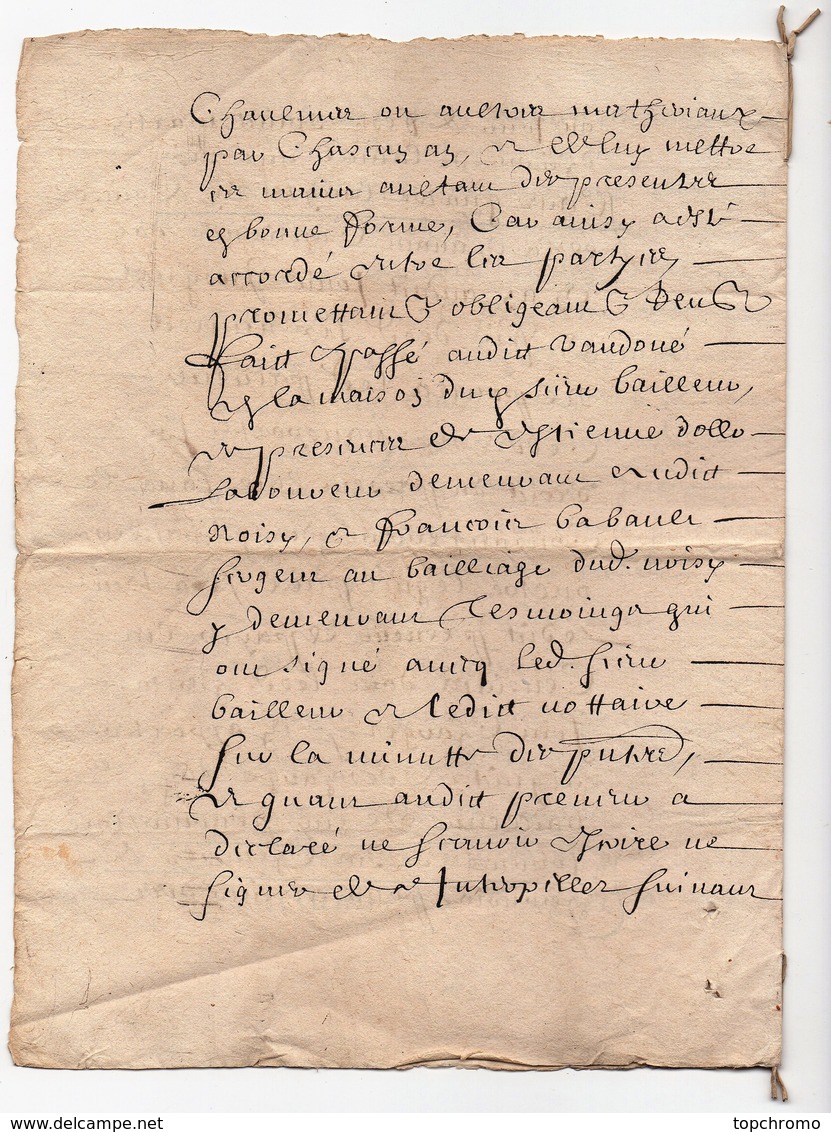 Chaulmes ou aultres matheriaux
par Chascun an, et de luy mettre
es mains aultant des presentes
en bonne forme, Car ainsy a esté
accordé entre les partyes
promettans &c obligeans &c Renon &c
faict et passé audict Vaudoué
en la maison dud sieur bailleur,
es presences de Estienne dollo
laboureur demeurant audict
Noisy, et François babault
sergent au bailliage dud. noisy
y demeurant tesmoings qui
ont signé avecq led. sieur
bailleur et ledict nottaire
sur la minutte des pntes,
et quant audict preneur a
declaré ne scavoir escrire ne
signer de ce Interpiller suivant
topchromo